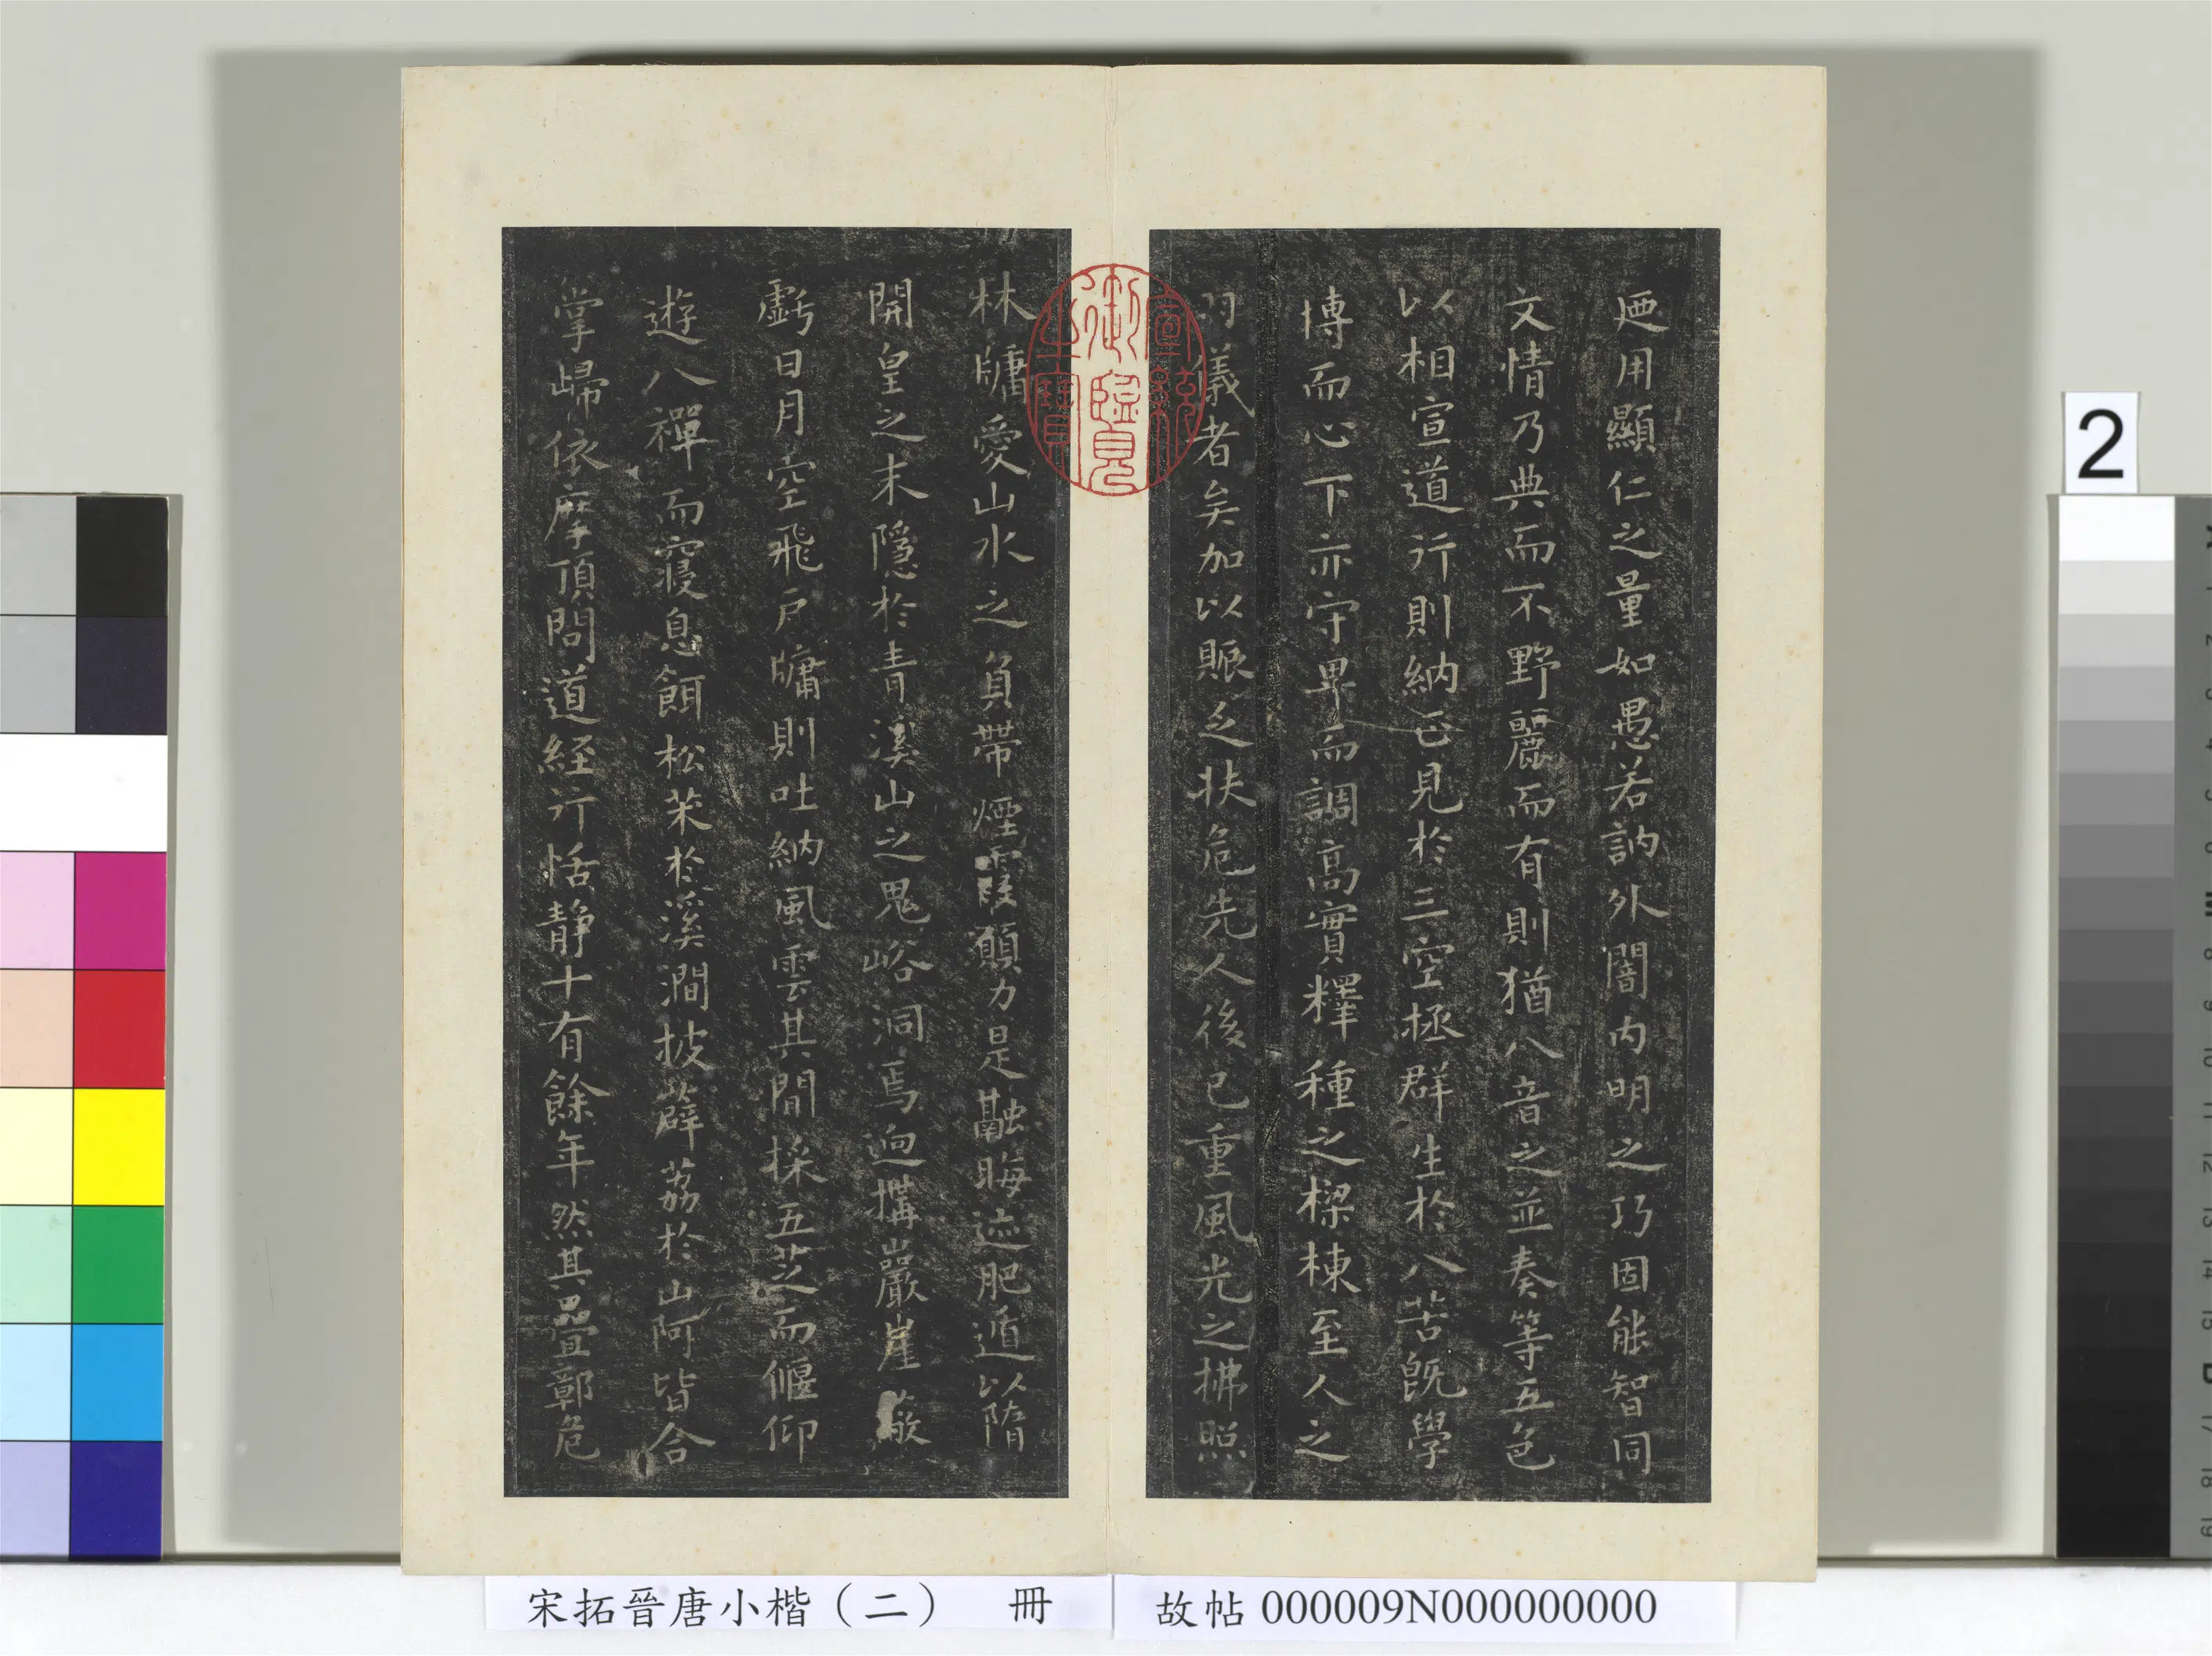 廼用顯仁之量如愚若訥外闇内明之巧固能智同
文情乃典而不野麗而有則猶八音之並奏等五色
以相宣道行則納正見於三空拯群生於八苦既學
博而心下亦守卑而調高實釋種之樑棟至人之
羽儀者矣加以賑乏扶危先人後已重風光之拂照
林牖愛山水之負帶煙霞願力是融晦迹肥遁以隋
開皇之末隱於青溪山之鬼峪洞焉迥構巖崖蔽
虧日月空飛戸牖則吐納風雲其間採五芝而偃仰
遊八禪而寢息餌松朮於溪澗披薜荔於山阿皆合
掌歸依摩頂問道經行恬靜十有餘年然其疊鄣危
宣統御覽之寶
宋拓晉唐小楷（二） 冊
故帖 000009N000000000
2